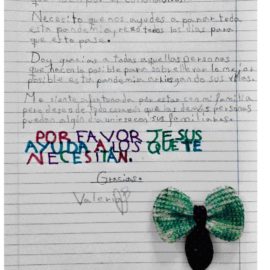 Necesito que nos ayudes a parar toda
esta pandemia, rezo todos los días para
que esto pase.
Doy gracias a todas aquellas personas
que hacen lo posible para sobrellevar lo mejor
posible esta pandemia arriesgando sus vidas.
Me siento afortunada por estar con mi familia
pero deseo de todo corazón que las demás personas
puedan algún día unirse con sus familiares.
POR FAVOR JESUS
AYUDA A LOS QUE TE
NECESITAN.
Gracias.
Valeria